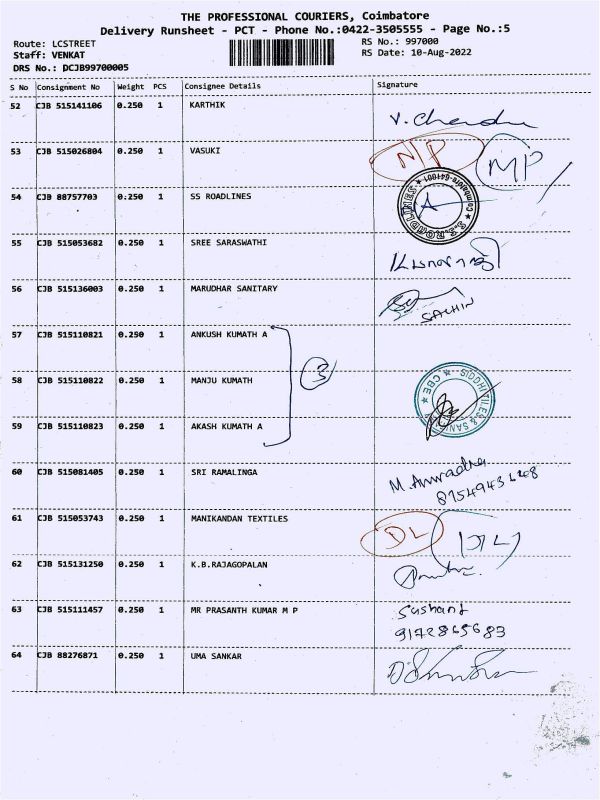 THE PROFESSIONAL COURIERS, Coimbatore
Delivery Runsheet - PCT - Phone No.:0422-3505555 - Page No.:5
Route: LCSTREET RS No.: 997000
Staff: VENKAT RS Date: 10-Aug-2022
DRS No.: DCJB99700005
S No Consignment No Weight PCS Consignee Details Signature
52 CJB 515141106 0.250 1 KARTHIK V. Chendru
53 CJB 515026804 0.250 1 VASUKI NP MP
54 CJB 88757703 0.250 1 SS ROADLINES S.S.ROADLINES ★ Coimbatore-641001 ★
55 CJB 515053682 0.250 1 SREE SARASWATHI
56 CJB 515136003 0.250 1 MARUDHAR SANITARY SACHIN
57 CJB 515110821 0.250 1 ANKUSH KUMATH A
58 CJB 515110822 0.250 1 MANJU KUMATH 3 ★ CBE ★
59 CJB 515110823 0.250 1 AKASH KUMATH A
60 CJB 515081405 0.250 1 SRI RAMALINGA M. Anuradha
61 CJB 515053743 0.250 1 MANIKANDAN TEXTILES DL
62 CJB 515131250 0.250 1 K.B.RAJAGOPALAN
63 CJB 515111457 0.250 1 MR PRASANTH KUMAR M P Sushant
9172865683
64 CJB 88276871 0.250 1 UMA SANKAR